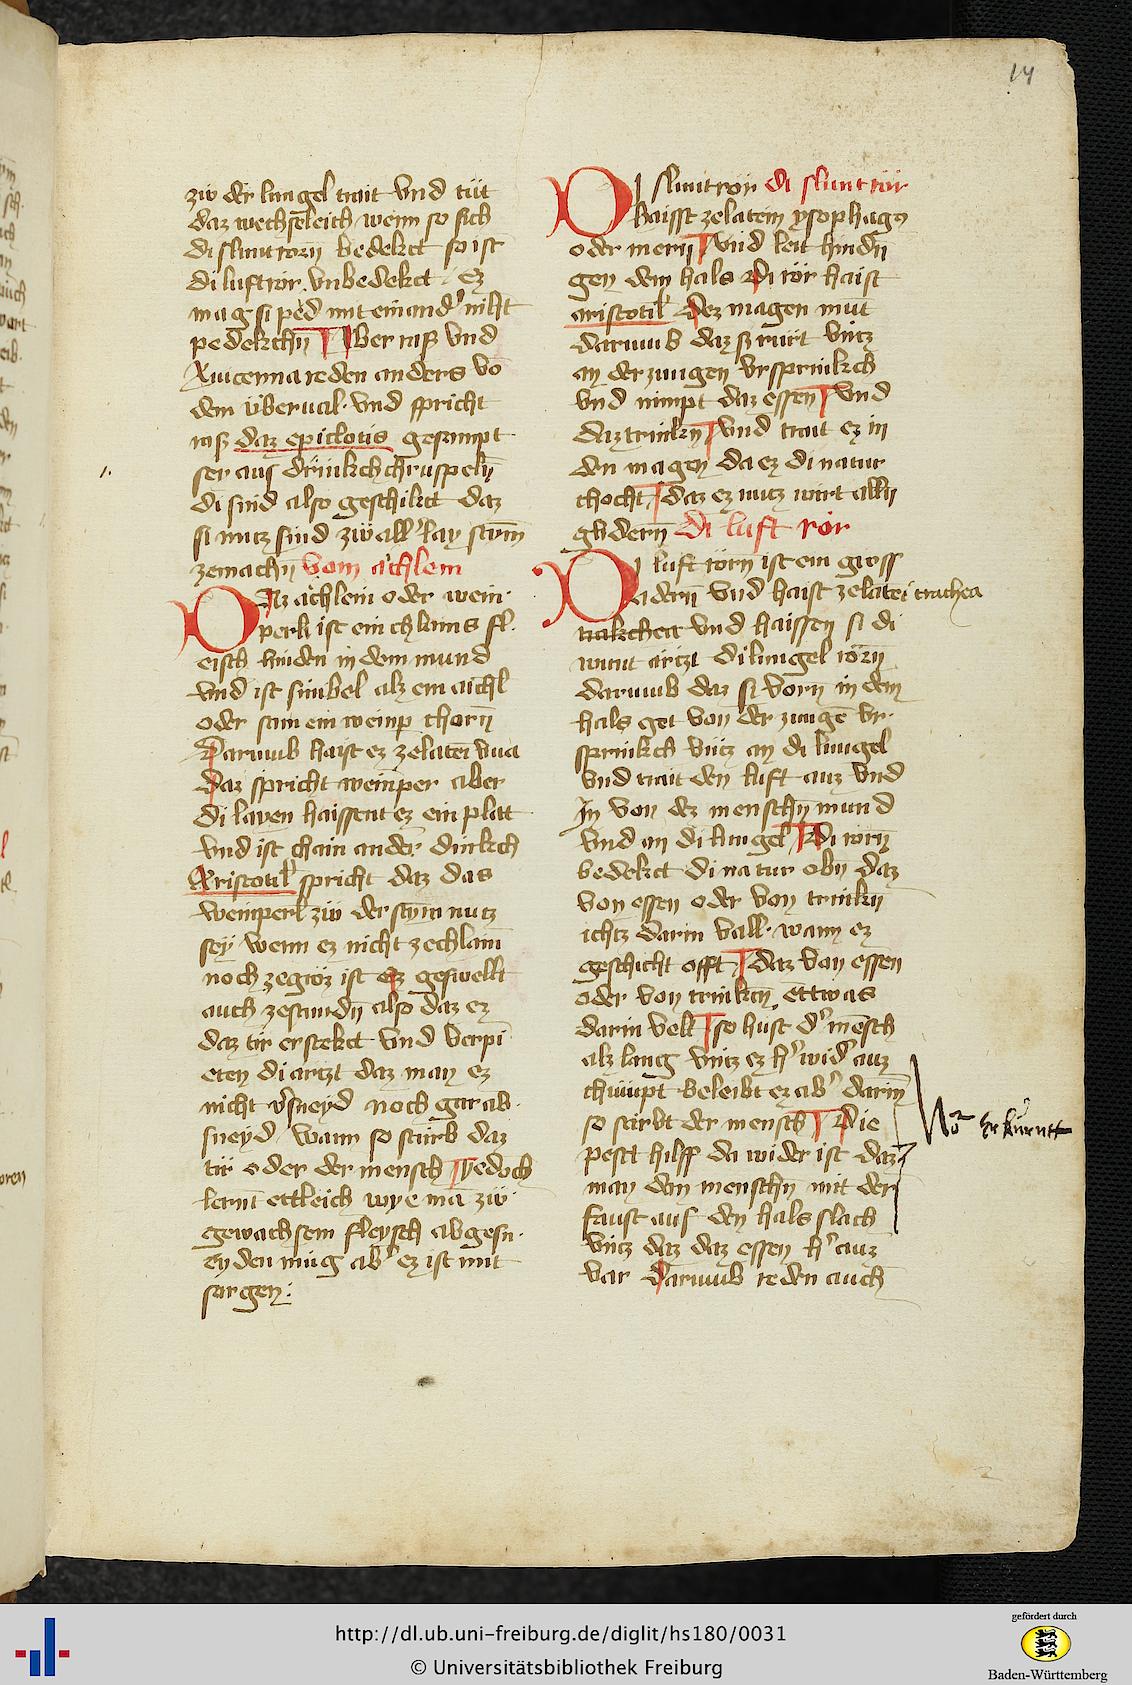 14
zw der lungel trait vnd tut
daz wechsēleich wenn so sich
di slunt rorn bedekct so ist
di luft ror vnbedekct ez
mag si ped mit einand' niht
pedekchn̄ Aber rasis vnd
Auicenna reden anders vō
dem vberual vnd spricht
daz epiclotis gesampt
sey aus drin kchchruspeln̄
di sind also geschikct daz
si nutz sind zw all'lay stym
zemachn̄ vom achlem
Daz achlein oder wein
perli ist ein chlains fl
eisch hinden in dem mund
vnd ist sinbel alz ein aichl
oder sam ein weinp chorn
Darumb haist ez zelatei vua
daz spricht weinper aber
di layen haissent ez ein plat
vnd ist chain ander dinkch
Aristotil' spricht daz das
weinperl zw der stym nutz
sey wenn ez nicht zechlain
noch zegroz ist ez geswellt
auch zestundn̄ also daz ez
daz tir erstekct vnd verpi
eten di artzt daz man ez
nicht v'sneyd noch gar ab
sneyd wann so sturb daz
tir oder der mensch yedoch
lernt ettleich wye mā zw
gewachsem fleysch abgesn
eyden mug ab' ez ist mit
sorgen
DI slunt rorn di slunt ror
haisst zelatein ysophag9
oder meri vnd leit hindn̄
gen dem hals Di ror haist
aristotil' Dez magen mut
darumb daz si rurt vntz
an der zungen vrsprinkch
vnd nimpt daz essen vnd
daz trinkn̄ vnd trait ez in
den magen da ez di natur
chocht daz ez nutz wirt alln̄
glidern̄ Di luft ror
DI luft rorn ist ein gross
adern vnd haist zelatei trachea
trakchea vnd haissen si di
wunt artzt di lungel rorn̄
darumb daz si vorn in dem
hals get von der zungē vr
sprinkch vntz an di lungel
vnd trait den luft auz vnd
In von dez menschn̄ mund
vnd an di lungel Di rorn̄
bedekct di natur obn̄ daz
von essen oder von trinkn̄
ichtz darin vall wann ez
geschicht offt daz von essen
oder von trinken ettwas
darin velt so hust d' mēsch
alz lang vntz ez h' wid' auz
chumpt beleibt ez ab' darin
so stirbt der mensch Die
pest hilff da wider ist daz
man den menschn mit der
faust auf den hals slach
vntz daz daz essen h' auz
var Darumb reden auch
http://dl.ub.uni-freiburg.de/diglit/hs180/0031
© Universitätsbibliothek Freiburg
gefördert durch
Baden-Württemberg